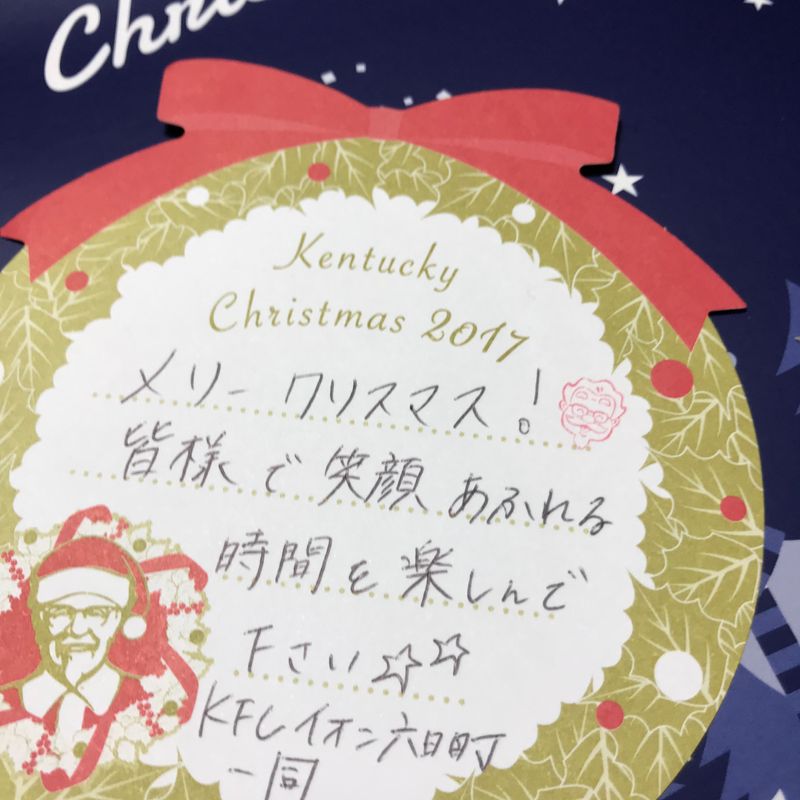 Kentucky
Christmas 2017
メリークリスマス!
皆様で笑顔あふれる
時間を楽しんで
下さい☆☆
KFCイオン六日町
一同